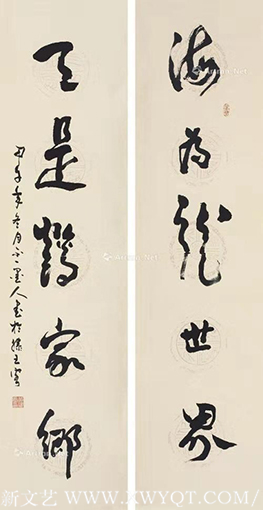 海为龙世界
天是鹤家乡
甲午年冬月
新文艺 WWW.XWYQT.COM/